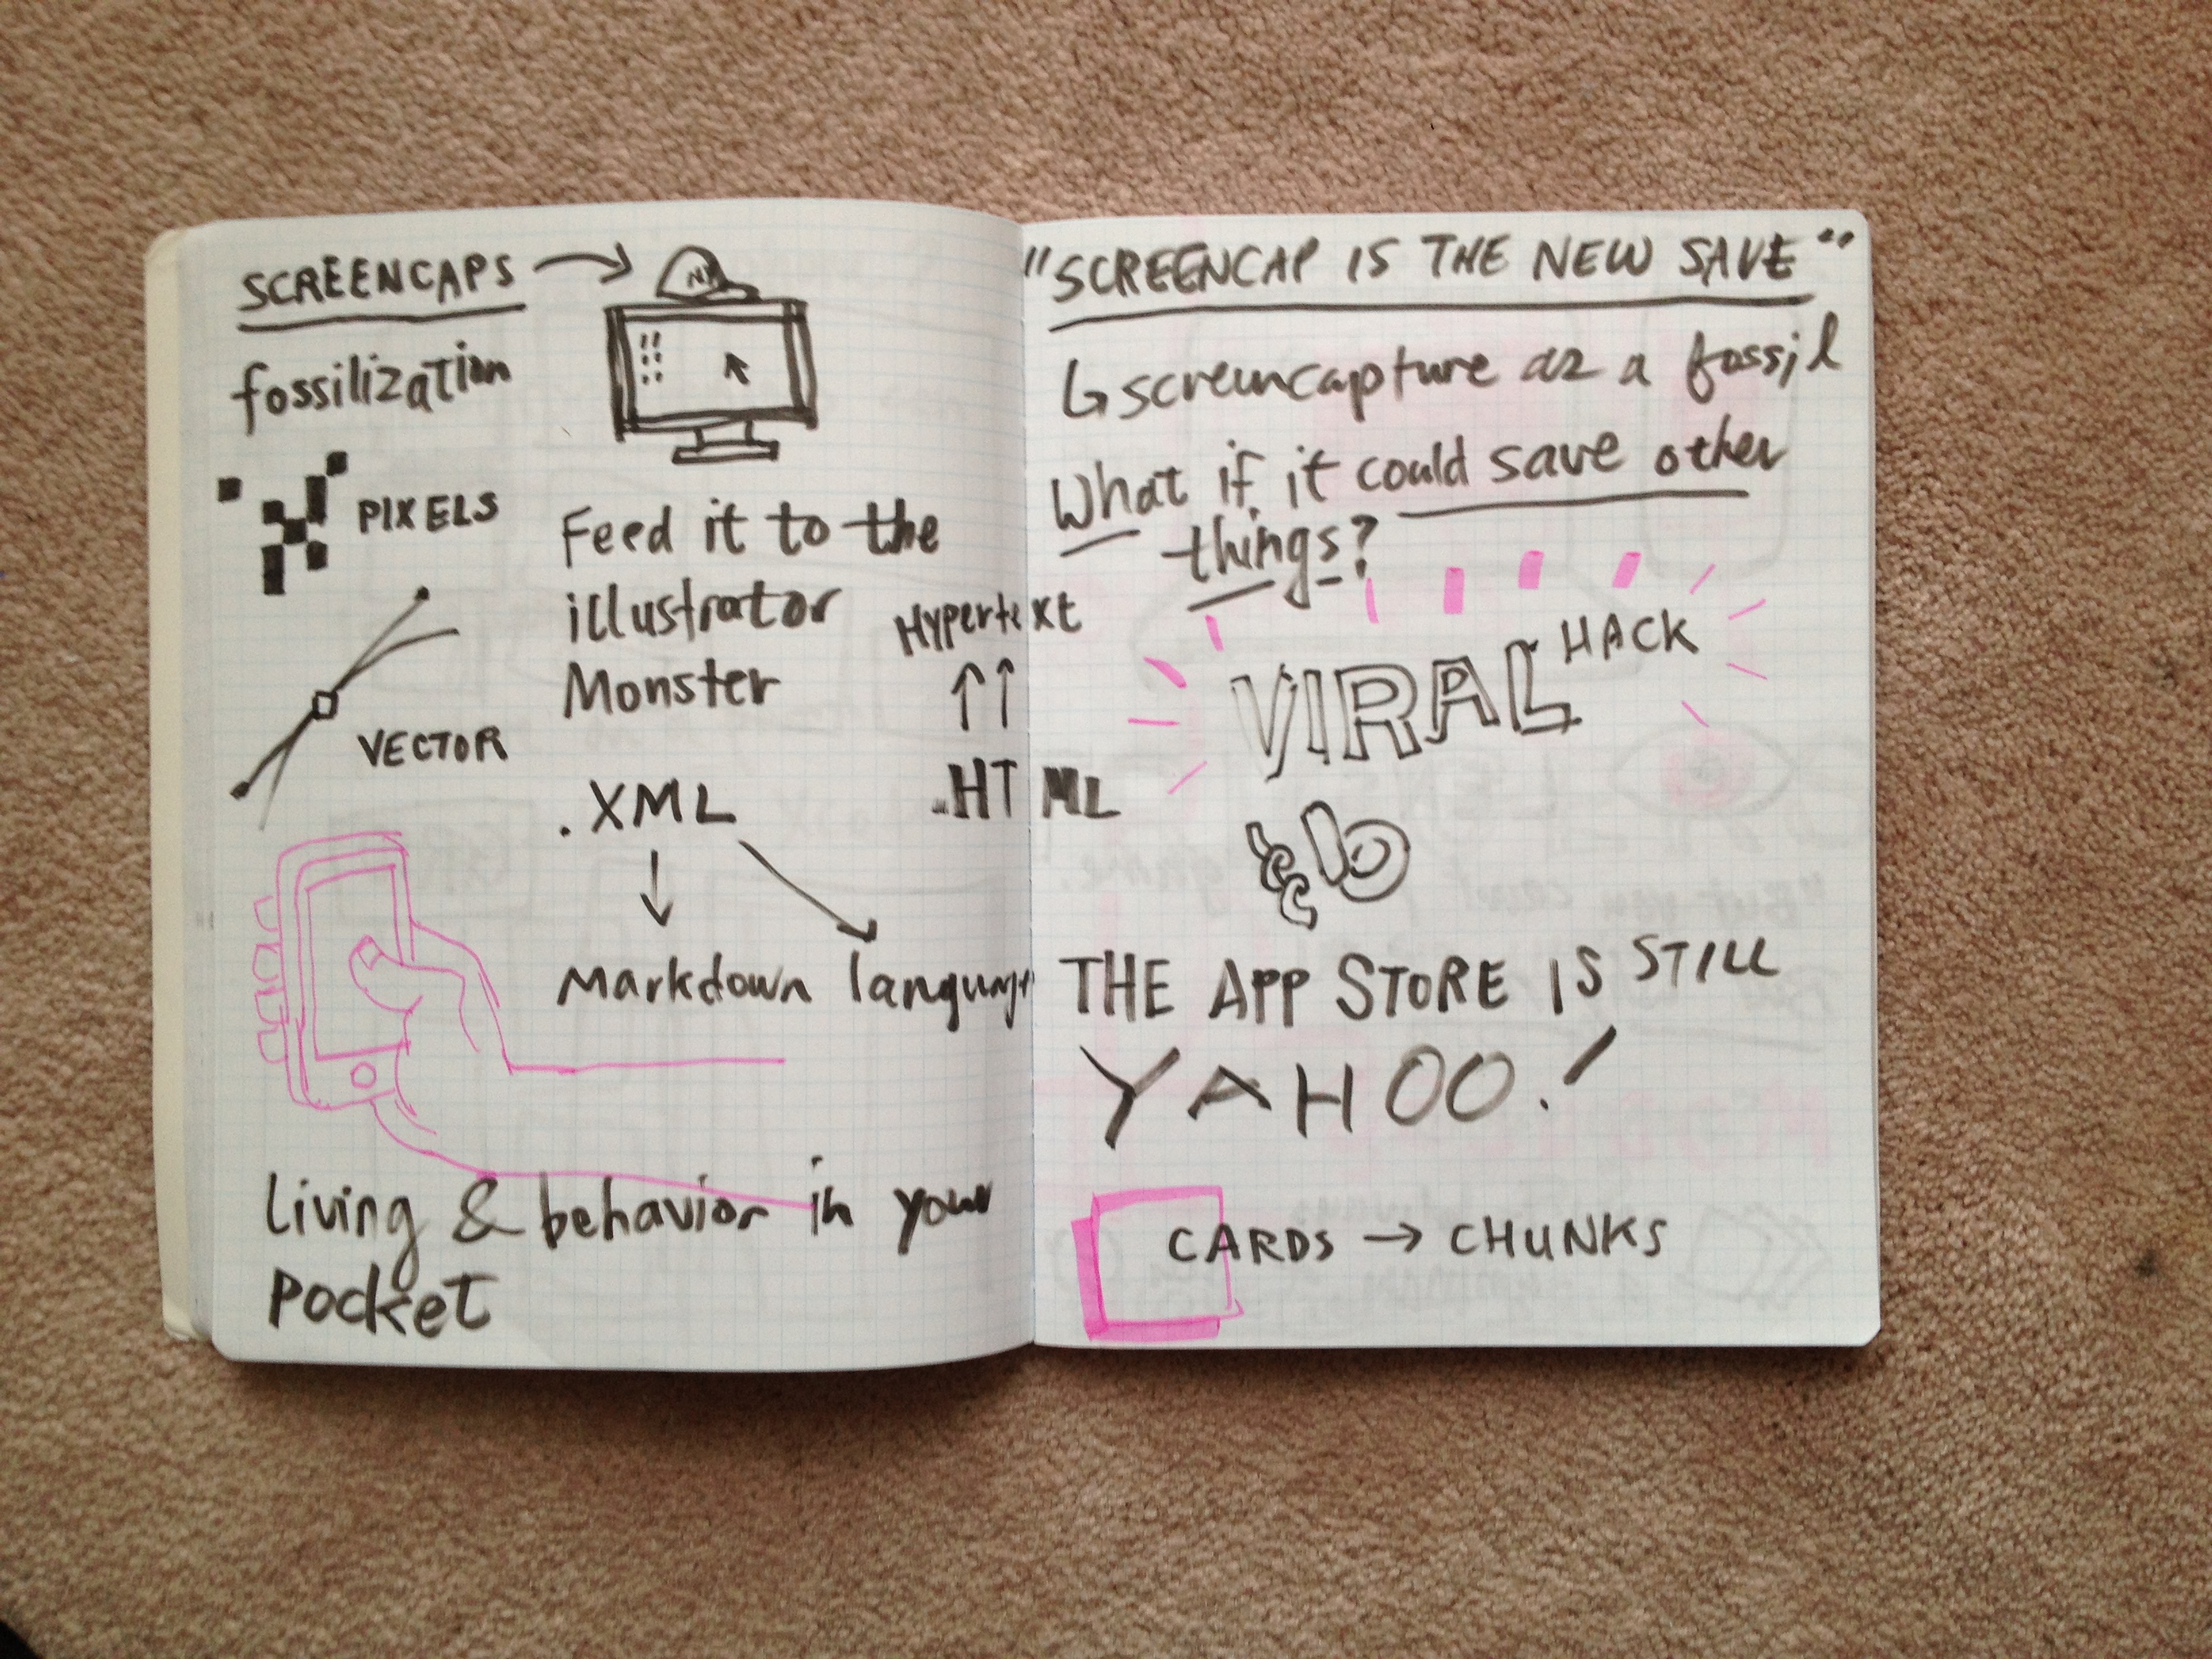 SCREENCAPS
fossilization
PIXELS
VECTOR
Feed it to the
illustrator
Monster
Hypertext
.HTML
.XML
Markdown language
Living & behavior in your
pocket
"SCREENCAP IS THE NEW SAVE"
screencapture as a fossil
What if it could save other
things?
VIRAL HACK
THE APP STORE IS STILL
YAHOO!
CARDS → CHUNKS